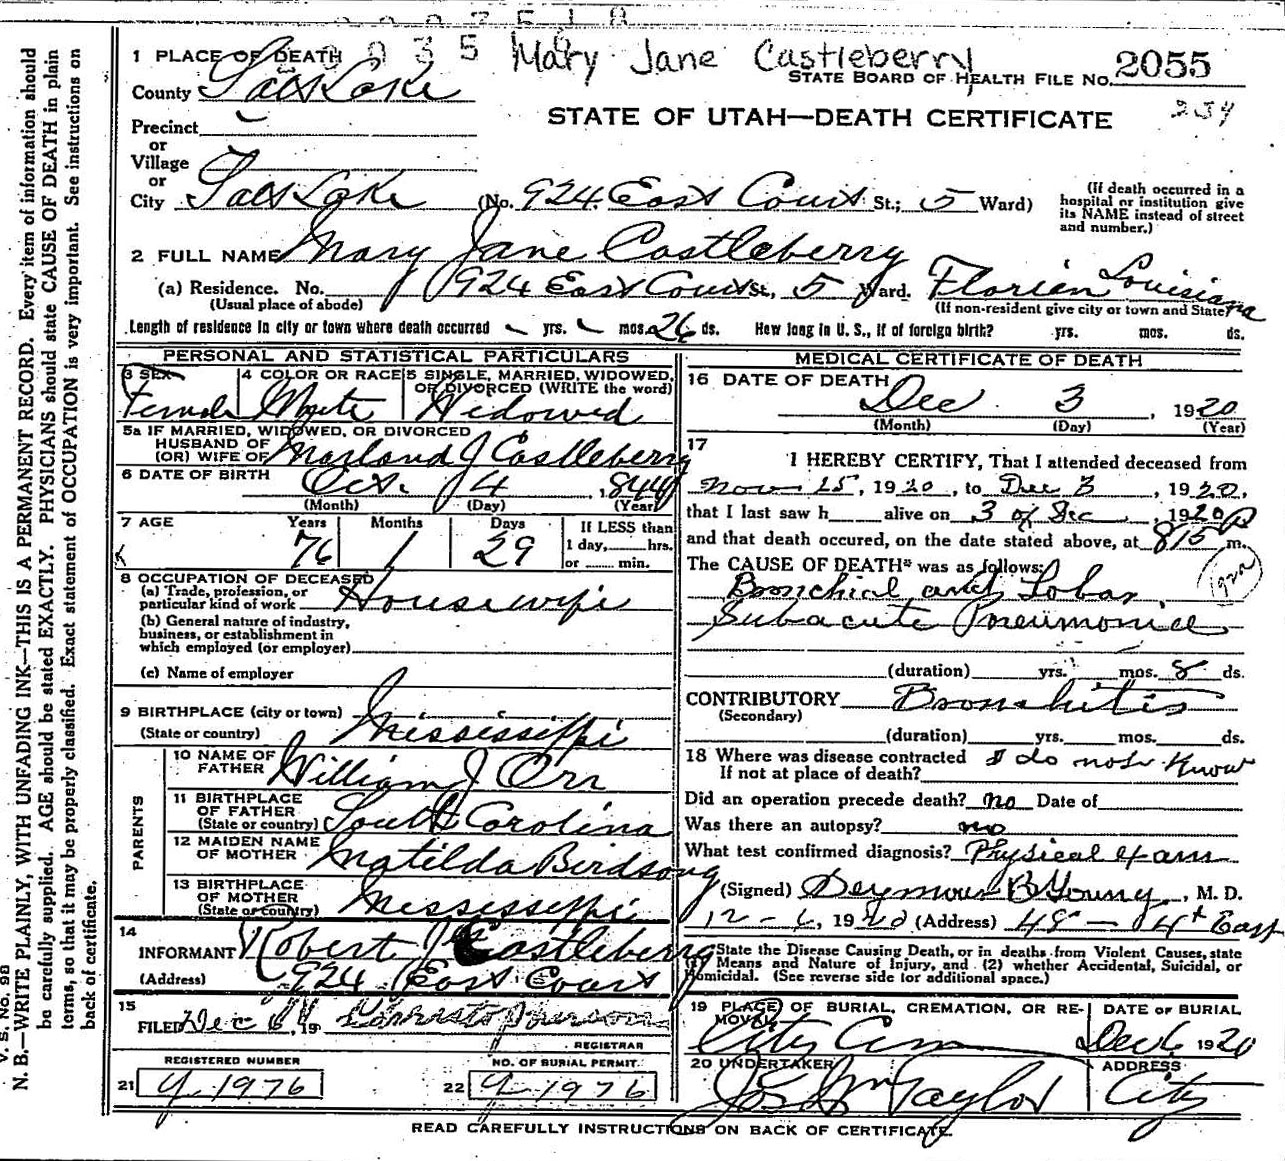 Mary Jane Castleberry
1 PLACE OF DEATH
STATE BOARD OF HEALTH FILE No. 2055
County Salt Lake
234
STATE OF UTAH—DEATH CERTIFICATE
Precinct
or
Village
or
City Salt Lake (No. 924 East Court St.; 5 Ward)
(If death occurred in a hospital or institution give its NAME instead of street and number.)
2 FULL NAME Mary Jane Castleberry
(a) Residence. No. 924 East Court St, 5 Ward. Florien Louisiana
(Usual place of abode) (If non-resident give city or town and State)
Length of residence in city or town where death occurred yrs. mos. 26 ds. How long in U. S., if of foreign birth? yrs. mos. ds.
PERSONAL AND STATISTICAL PARTICULARS
3 SEX 4 COLOR OR RACE 5 SINGLE, MARRIED, WIDOWED, OR DIVORCED (WRITE the word)
Female White Widowed
5a IF MARRIED, WIDOWED, OR DIVORCED
HUSBAND OF
(OR) WIFE OF Marland J Castleberry
6 DATE OF BIRTH Oct. 4, 1844
(Month) (Day) (Year)
7 AGE Years Months Days If LESS than
76 1 29 1 day, hrs.
or min.
8 OCCUPATION OF DECEASED
(a) Trade, profession, or
particular kind of work Housewife
(b) General nature of industry,
business, or establishment in
which employed (or employer)
(c) Name of employer
9 BIRTHPLACE (city or town)
(State or country) Mississippi
PARENTS
10 NAME OF FATHER William J Orr
11 BIRTHPLACE OF FATHER
(State or country) South Carolina
12 MAIDEN NAME OF MOTHER Matilda Birdsong
13 BIRTHPLACE OF MOTHER
(State or country) Mississippi
14
INFORMANT Robert Castleberry
(Address) 924 East Court
15
FILED Dec 6, 19
REGISTRAR
REGISTERED NUMBER NO. OF BURIAL PERMIT
21 y-1976 22 y-1976
MEDICAL CERTIFICATE OF DEATH
16 DATE OF DEATH Dec 3, 1920
(Month) (Day) (Year)
17
I HEREBY CERTIFY, That I attended deceased from
Nov 25, 1920, to Dec 3, 1920,
that I last saw h alive on 3 of Dec, 1920
and that death occured, on the date stated above, at 815 P m.
The CAUSE OF DEATH* was as follows:
Bronchial and Lobar
Subacute Pneumonia
(duration) yrs. mos. 8 ds.
CONTRIBUTORY Bronchitis
(Secondary)
(duration) yrs. mos. ds.
18 Where was disease contracted
If not at place of death? I do not know
Did an operation precede death? no Date of
Was there an autopsy? no
What test confirmed diagnosis? Physical Exam
(Signed) Seymour B Young, M. D.
12-6, 1920 (Address) 48 - 4th East
*State the Disease Causing Death, or in deaths from Violent Causes, state (1) Means and Nature of Injury, and (2) whether Accidental, Suicidal, or Homicidal. (See reverse side for additional space.)
19 PLACE OF BURIAL, CREMATION, OR REMOVAL DATE OF BURIAL
City Cem Dec 6 1920
20 UNDERTAKER ADDRESS
Jos Wm Taylor City
READ CAREFULLY INSTRUCTIONS ON BACK OF CERTIFICATE.
V. S. No. 98
N. B.—WRITE PLAINLY, WITH UNFADING INK—THIS IS A PERMANENT RECORD. Every item of information should
be carefully supplied. AGE should be stated EXACTLY. PHYSICIANS should state CAUSE OF DEATH in plain
terms, so that it may be properly classified. Exact statement of OCCUPATION is very important. See instructions on
back of certificate.